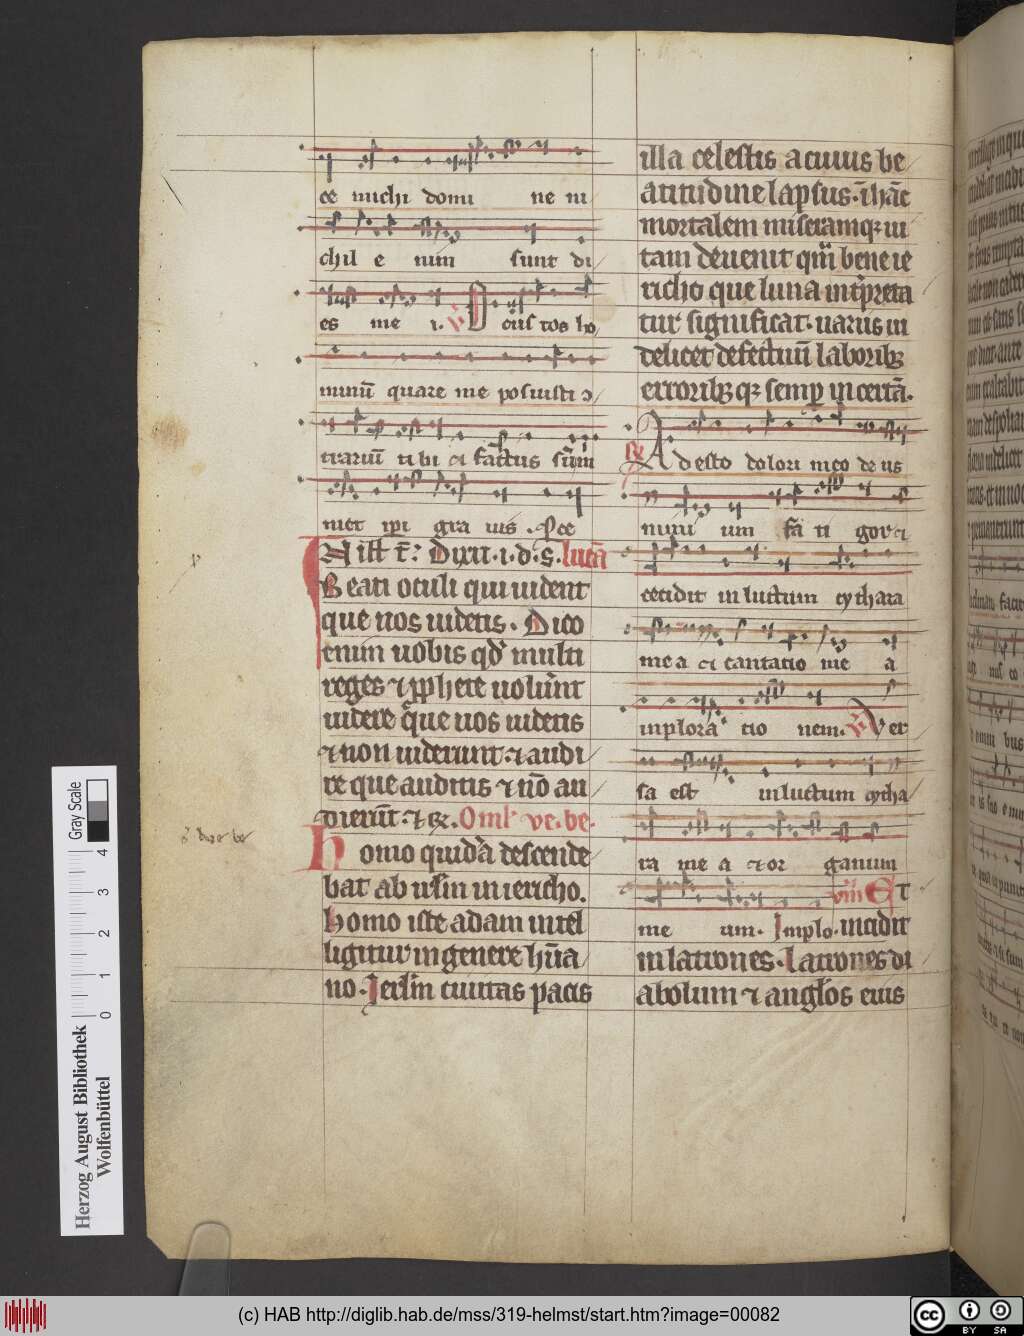 ce michi domi ne ni
chil e nim sunt di
es me i. V Cust tos ho
minū quare me posuisti ɔ
trariū ti bi et factus sum
met ipi gra uis. Pce
In illo t̄: Dixit .i. d. s. lucā
Beati oculi qui uident
que uos uidetis. Dico
enim uobis qd multi
reges ⁊ pphete uolūnt
uidere que uos uidetis
⁊ non uiderunt. ⁊ audi
re que auditis ⁊ nō au
dierūt. ⁊ Rel. Oml ve. be.
Homo quidā descende
bat ab irlm in iericho.
homo iste adam intel
ligitur in genere hūa
no. Ierlm ciuitas pacis
illa celestis a cuius be
atitudine lapsus. in hāc
mortalem miseramqꝫ ui
tam deuenit qm bene ie
richo que luna intpreta
tur significat. uariis ui
delicet defectuū laboribꝫ
erroribꝫqꝫ semp incertā.
R Adesto dolori meo de us
nimi um fa ti gor et
cecidit in luctum cythara
me a et cantatio me a
in plora tio nem. V Ver
sa est in luctum cytha
ra me a et or ganum
me um. Implo. VIII Et incidit
in latrones. Latrones di
abolum ⁊ anglos eius
Herzog August Bibliothek
Wolfenbüttel
Gray Scale
0 1 2 3 4
(c) HAB http://diglib.hab.de/mss/319-helmst/start.htm?image=00082
cc BY SA